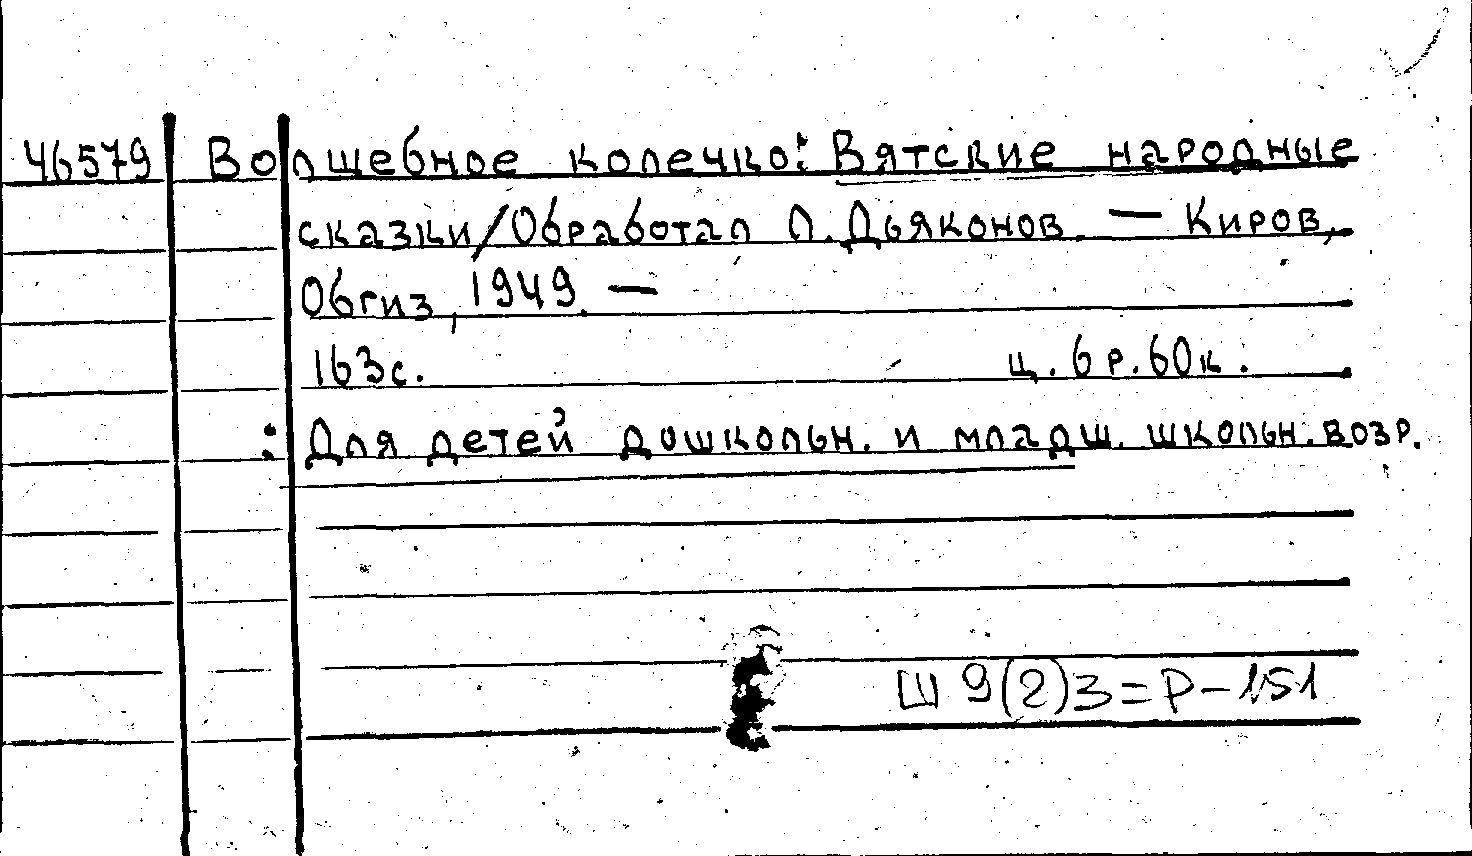 46579 Волшебное колечко: Вятские народные
сказки/Обработал Л. Дьяконов. — Киров,
Обгиз, 1949. —
163с. ц. 6 р. 60к.
: Для детей дошкольн. и младш. школьн. возр.
Ш 9(2)3=Р-151